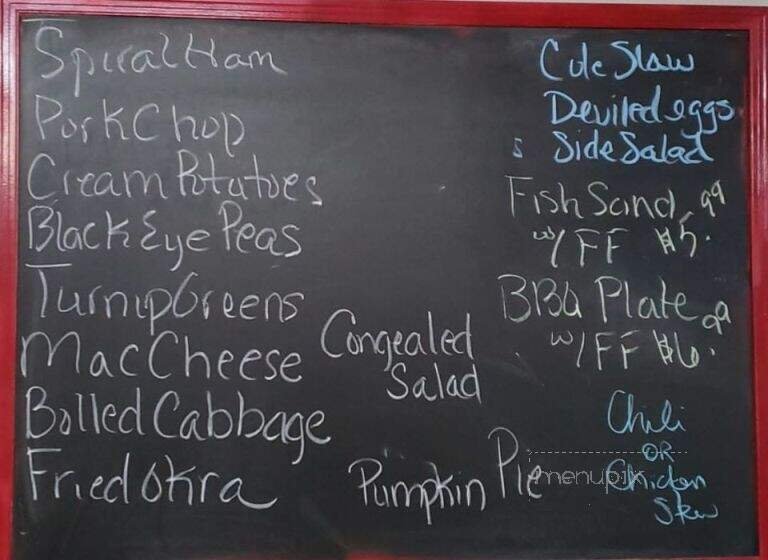 Spiral Ham
Pork Chop
Cream Potatoes
Black Eye Peas
Turnip Greens
Mac Cheese
Boiled Cabbage
Fried Okra
Congealed
Salad
Pumpkin Pie
Cole Slaw
Deviled eggs
Side Salad
Fish Sand
w/ FF $5.99
BBQ Plate
w/ FF $6.99
Chili
OR
Chicken
Stew
menupix